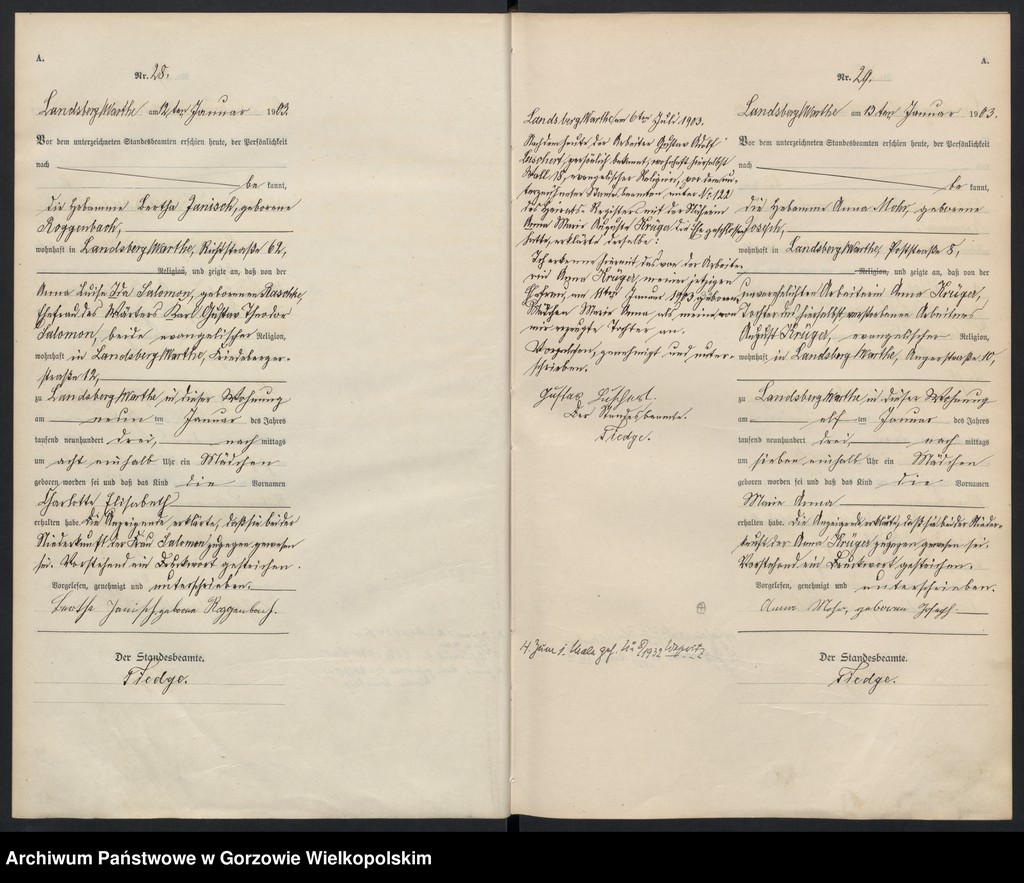 A.
Nr. 28.
Landsberg Warthe am 12 ten Januar 1903.
Vor dem unterzeichneten Standesbeamten erschien heute, der Persönlichkeit
nach
be kannt,
die Hebamme Bertha Janisch, geborene
Roggenbach,
wohnhaft in Landsberg Warthe, Küststraße 62,
Religion, und zeigte an, daß von der
Anna Luise Ida Salomon, geborenen Raschke,
Ehefrau des Wärters Karl Gustav Theodor
Salomon, beide evangelischer Religion,
wohnhaft in Landsberg Warthe, Friedeberger-
straße 12,
zu Landsberg Warthe in dieser Wohnung
am neun ten Januar des Jahres
tausend neunhundert drei, nach mittags
um acht einhalb Uhr ein Mädchen
geboren worden sei und daß das Kind die Vornamen
Charlotte Elisabeth
erhalten habe. Die Anzeigende erklärte, daß sie bei der
Niederkunft der Frau Salomon zugegen gewesen
sei. Vorstehend ein Druckwort gestrichen.
Vorgelesen, genehmigt und unterschrieben.
Bertha Janisch geborne Roggenbach.
Der Standesbeamte.
Tiedge.
Landsberg Warthe am 6 ten Juli 1903.
Nachdem heute der Arbeiter Gustav Adolf
persönlich bekannt, wohnhaft hierselbst
Wall 18, evangelischer Religion, vor dem un-
terzeichneten Standesbeamten unter Nr. 122
des Heirats-Registers mit der
Anna Marie Auguste Krüger die Ehe geschlossen
hatte, erklärte derselbe:
Ich erkenne hiermit das von der Arbeite-
rin Anna Krüger, meiner jetzigen
Ehefrau, am 11 ten Januar 1903 geborene
Mädchen Marie Anna als meine, von
mir erzeugte Tochter an.
Vorgelesen, genehmigt und unter-
schrieben.
Gustav
Der Standesbeamte.
Tiedge.
1932
A.
Nr. 29.
Landsberg Warthe am 13 ten Januar 1903.
Vor dem unterzeichneten Standesbeamten erschien heute, der Persönlichkeit
nach
be kannt,
die Hebamme Anna Mohr, geborene
Joseph,
wohnhaft in Landsberg Warthe, Poststraße 8,
Religion, und zeigte an, daß von der
unverehelichten Arbeiterin Anna Krüger,
Tochter des hierselbst verstorbenen Arbeiters
August Krüger, evangelischer Religion,
wohnhaft in Landsberg Warthe, Angerstraße 10,
zu Landsberg Warthe in dieser Wohnung
am elf ten Januar des Jahres
tausend neunhundert drei, nach mittags
um sieben einhalb Uhr ein Mädchen
geboren worden sei und daß das Kind die Vornamen
Marie Anna
erhalten habe. Die Anzeigende erklärte, daß sie bei der Nieder-
kunft der Anna Krüger zugegen gewesen sei.
Vorstehend ein Druckwort gestrichen.
Vorgelesen, genehmigt und unterschrieben.
Anna Mohr, geborene Joseph
Der Standesbeamte.
Tiedge.
Archiwum Państwowe w Gorzowie Wielkopolskim